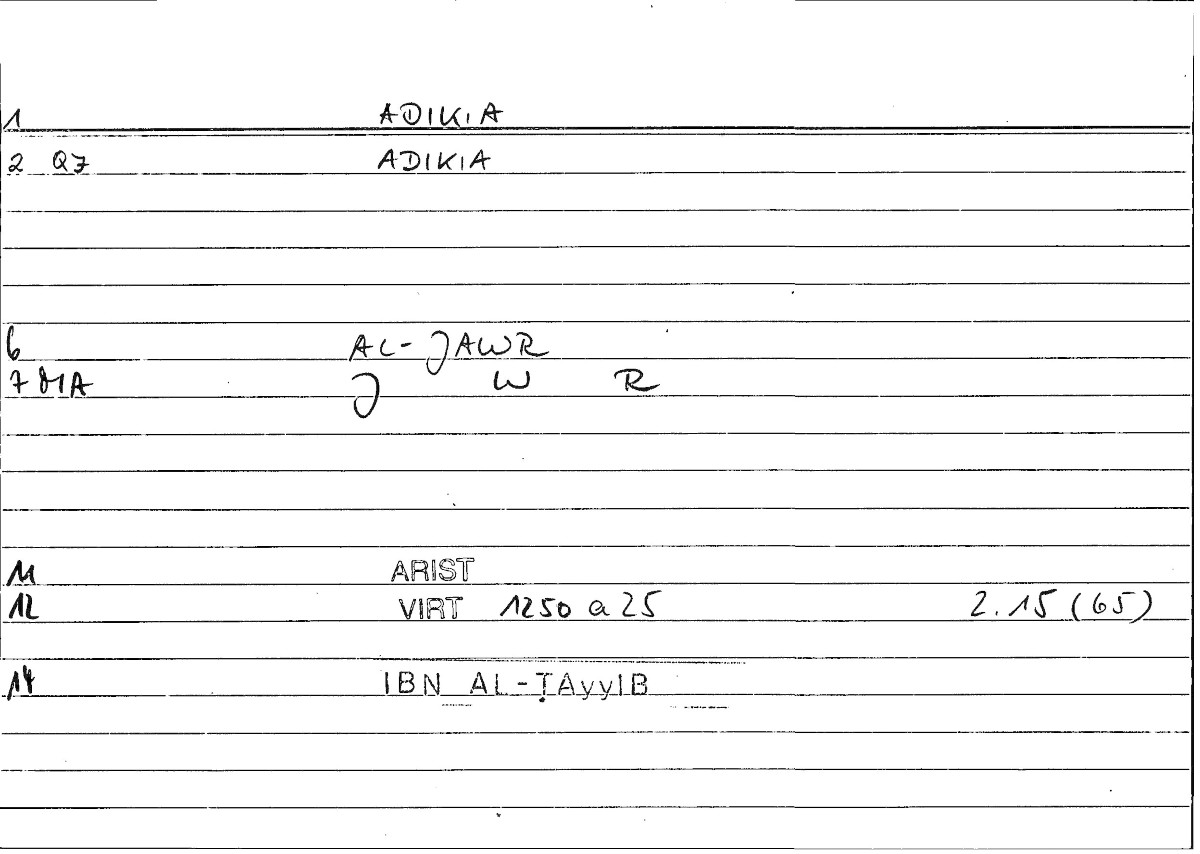 1 ADIKIA
2 QZ ADIKIA
6 AL-JAWR
7 MA J W R
11 ARIST
12 VIRT 1250 a 25 2.15 (65)
14 IBN AL-ṬAyyIB